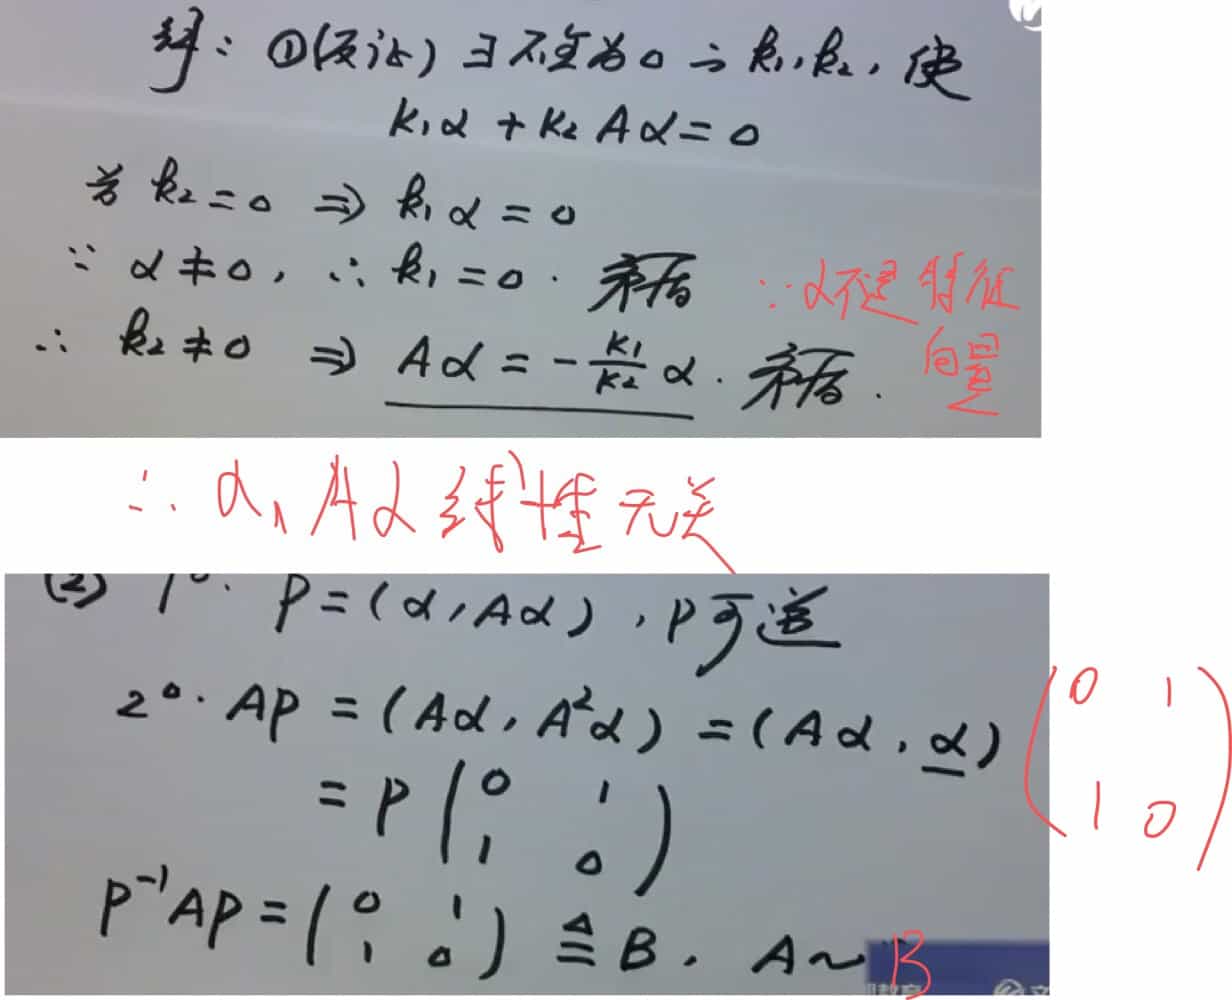 解: ①(反证) ∃ 不全为0 的 k₁, k₂, 使
k₁α + k₂ Aα = 0
若 k₂ = 0 ⇒ k₁α = 0
∵ α ≠ 0, ∴ k₁ = 0. 矛盾
∵ α不是特征向量
∴ k₂ ≠ 0 ⇒ Aα = -k₁/k₂ α. 矛盾.
∴ α, Aα 线性无关
(2) 1°. P = (α, Aα), P可逆
2°. AP = (Aα, A²α) = (Aα, α)
(0 1
1 0)
= P (0 1
1 0)
P⁻¹AP = (0 1
1 0) ≜ B. A ~ B